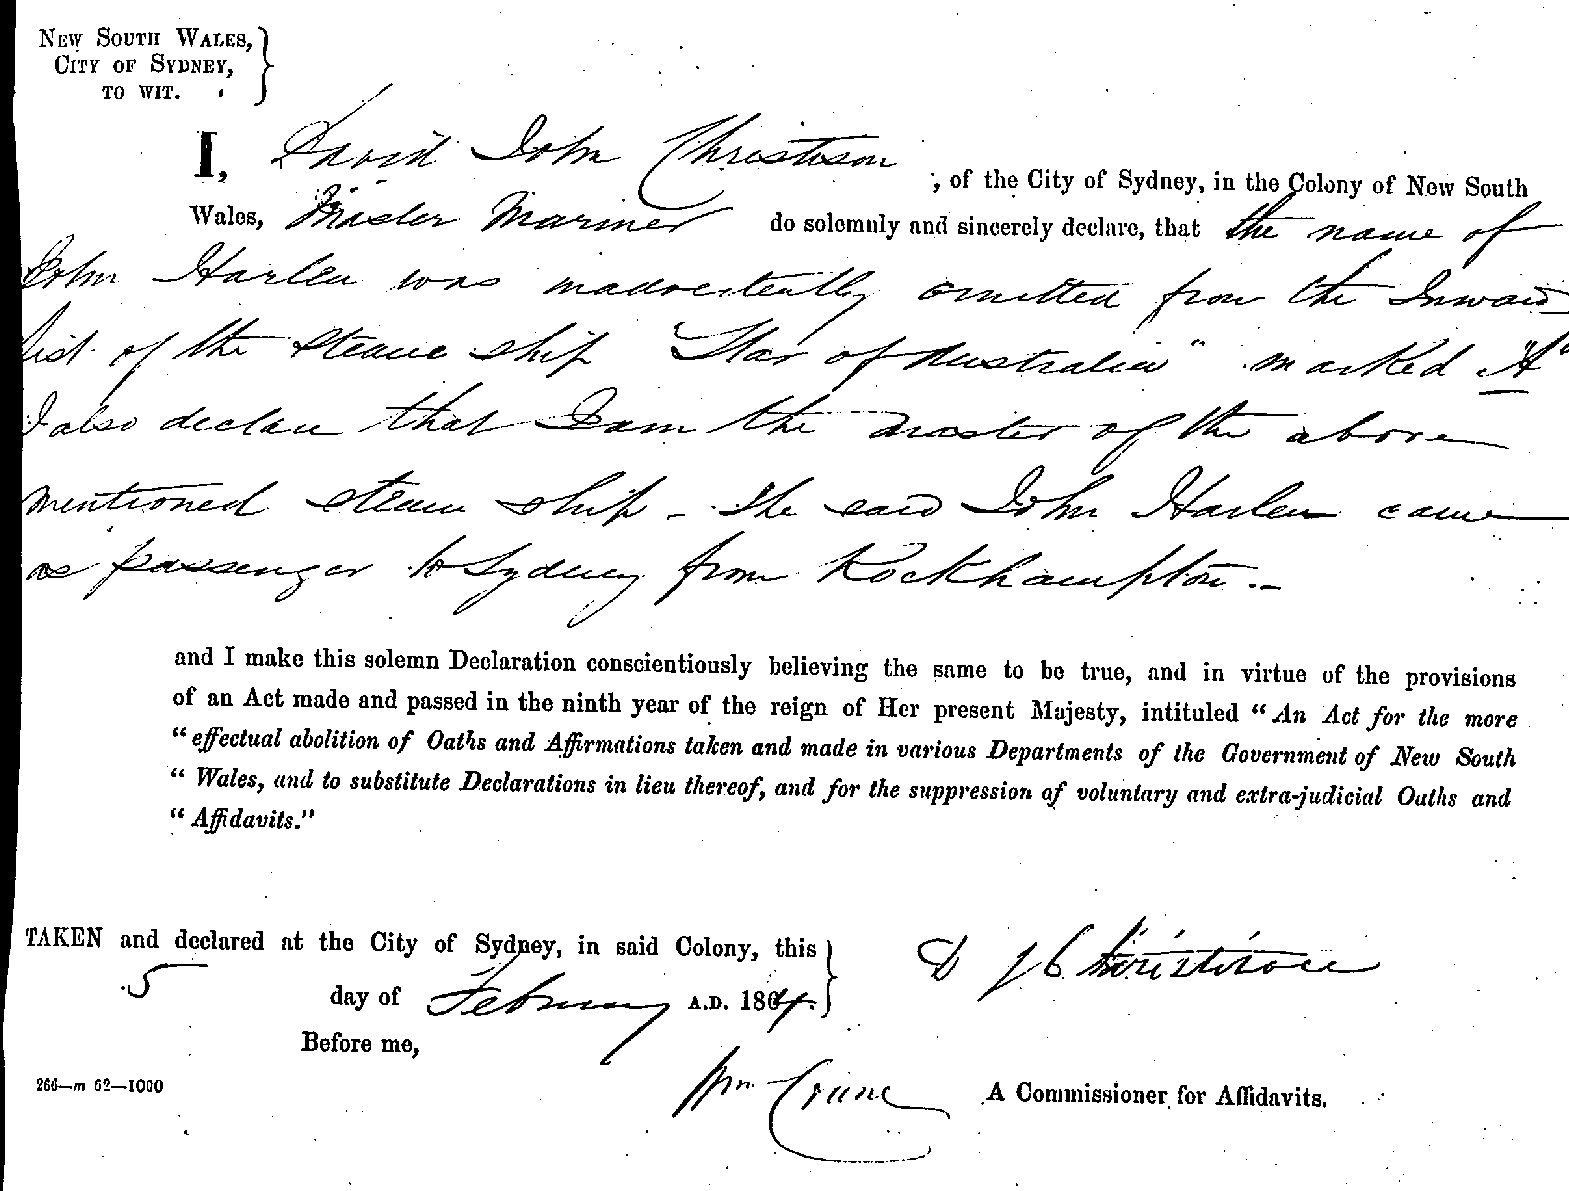 NEW SOUTH WALES,
CITY OF SYDNEY,
TO WIT.
I, David John Christison
, of the City of Sydney, in the Colony of New South
Wales, Master Mariner do solemnly and sincerely declare, that the name of
John Harlen was inadvertently omitted from the Inward
list of the steam ship "Star of Australia" marked "A"
I also declare that I am the master of the above
mentioned steam ship - The said John Harlen came
as passenger to Sydney from Rockhampton.-
and I make this solemn Declaration conscientiously believing the same to be true, and in virtue of the provisions
of an Act made and passed in the ninth year of the reign of Her present Majesty, intituled "An Act for the more
"effectual abolition of Oaths and Affirmations taken and made in various Departments of the Government of New South
"Wales, and to substitute Declarations in lieu thereof, and for the suppression of voluntary and extra-judicial Oaths and
"Affidavits."
TAKEN and declared at the City of Sydney, in said Colony, this
5 day of February A.D. 1864.
D J Christison
Before me,
Wm Crane
A Commissioner for Affidavits.
266—m 62—1000